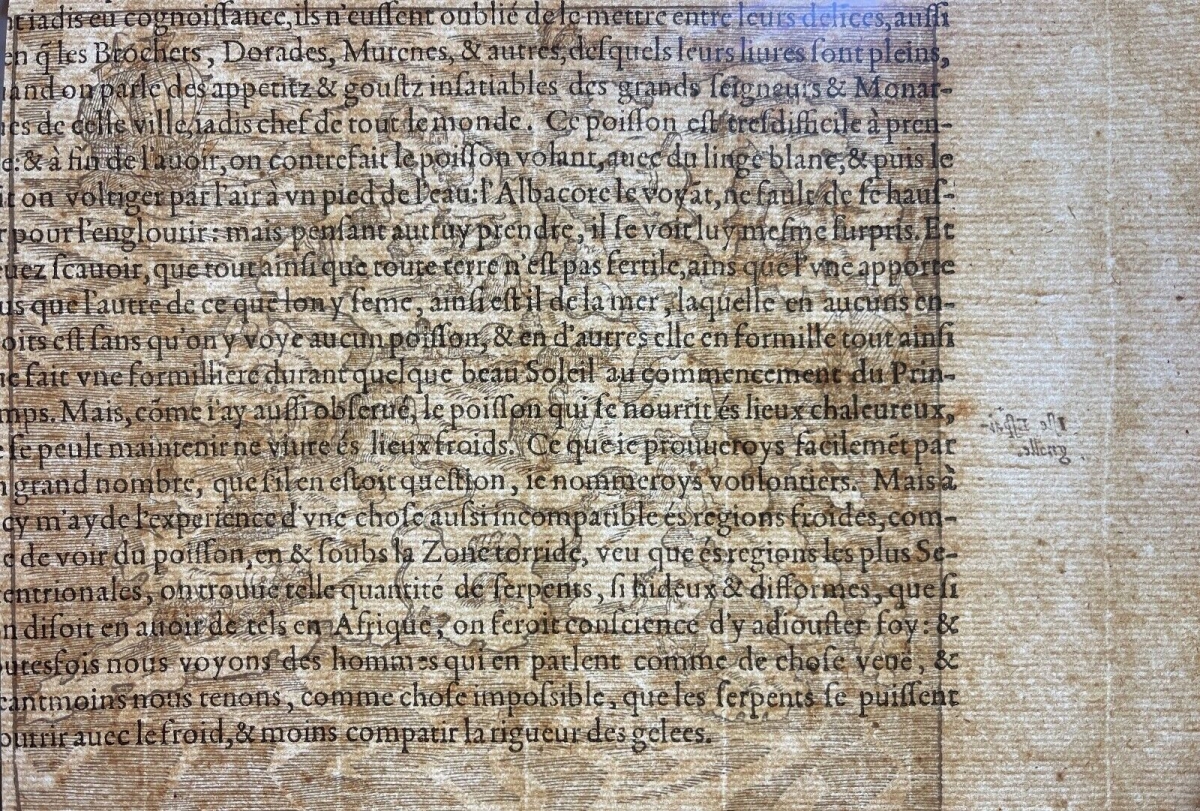 t iadis eu cognoiſſance, ils n'euſſent oublié de le mettre entre leurs delices, auſſi
en q̃ les Brochets, Dorades, Murenes, & autres, deſquels leurs liures ſont pleins,
and on parle des appetitz & gouſtz inſatiables des grands ſeigneurs & Monar-
es de celle ville, iadis chef de tout le monde. Ce poiſſon eſt treſdifficile à pren-
e: & à fin de l'auoir, on contrefait le poiſſon volant, auec du linge blanc, & puis le
t on voltiger par l'air à vn pied de l'eau: l'Albacore le voyãt, ne fault de ſe hauſ-
r pour l'engloutir: mais penſant autruy prendre, il ſe voit luy meſme ſurpris. Et
uez ſcauoir, que tout ainſi que toute terre n'eſt pas fertile, ains que l'vne apporte
us que l'autre de ce que lon y ſeme, ainſi eſt il de la mer, laquelle en aucuns en-
oits eſt ſans qu'on y voye aucun poiſſon, & en d'autres elle en formille tout ainſi
e fait vne formilliere durant quelque beau Soleil au commencement du Prin-
mps. Mais, cõme i'ay auſſi obſerué, le poiſſon qui ſe nourrit és lieux chaleureux,
e ſe peult maintenir ne viure és lieux froids. Ce que ie prouueroys facilemẽt par
n grand nombre, que ſ'il en eſtoit queſtion, ie nommeroys voulontiers. Mais à
cy m'ayde l'experience d'vne choſe auſsi incompatible es regions froides, com-
e de voir du poiſſon, en & ſoubs la Zone torride, veu que és regions les plus Se-
entrionales, on trouue telle quantité de ſerpents, ſi hideux & difformes, que ſi
n diſoit en auoir de tels en Afrique, on feroit conſcience d'y adiouſter foy: &
outesfois nous voyons des hommes qui en parlent comme de choſe veuë, &
eantmoins nous tenons, comme choſe impoſsible, que les ſerpents ſe puiſſent
ourrir auec le froid, & moins compatir la rigueur des gelees.